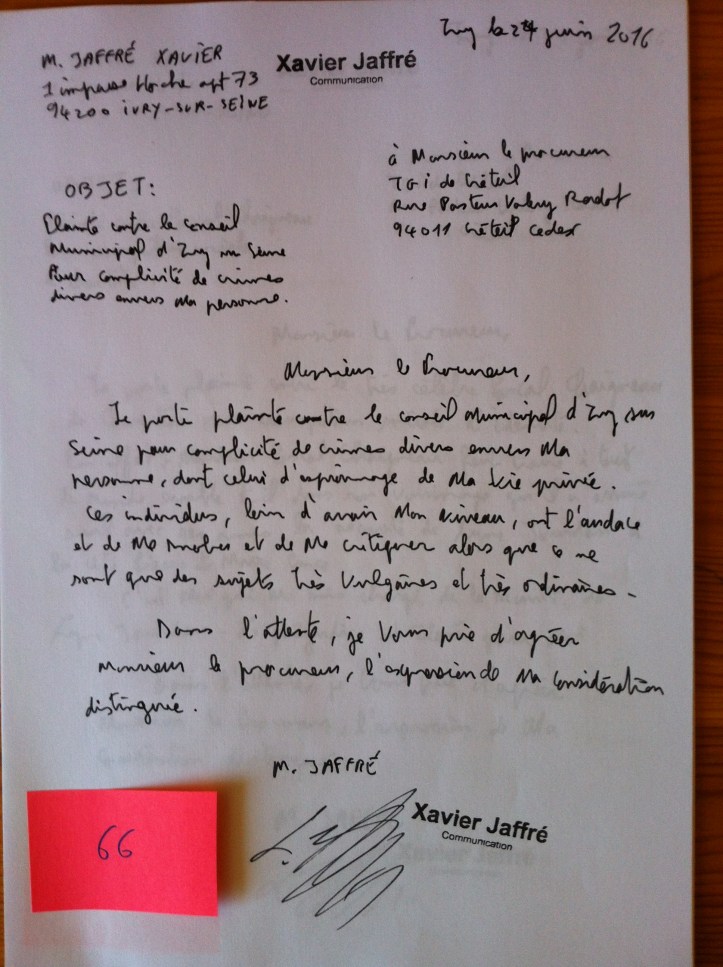 Ivry le 24 juin 2016
M. JAFFRÉ XAVIER
1 impasse Hoche apt 73
94200 IVRY-SUR-SEINE
Xavier Jaffré
Communication
à Monsieur le procureur
TGI de Créteil
Rue Pasteur Valery Radot
94011 Créteil Cedex
OBJET:
Plainte contre le conseil
Municipal d'Ivry sur Seine
Pour complicité de crimes
divers envers ma personne.
Monsieur le Procureur,
Je porte plainte contre le conseil Municipal d'Ivry sur
Seine pour complicité de crimes divers envers Ma
personne, dont celui d'espionnage de Ma vie privée.
Ces individus, loin d'avoir Mon Niveau, ont l'audace
et de Me snober et de Me critiquer alors que ce ne
sont que des sujets très vulgaires et très ordinaires.
Dans l'attente, je vous prie d'agréer
Monsieur le procureur, l'expression de Ma considération
distinguée.
M. JAFFRÉ
Xavier Jaffré
Communication
66